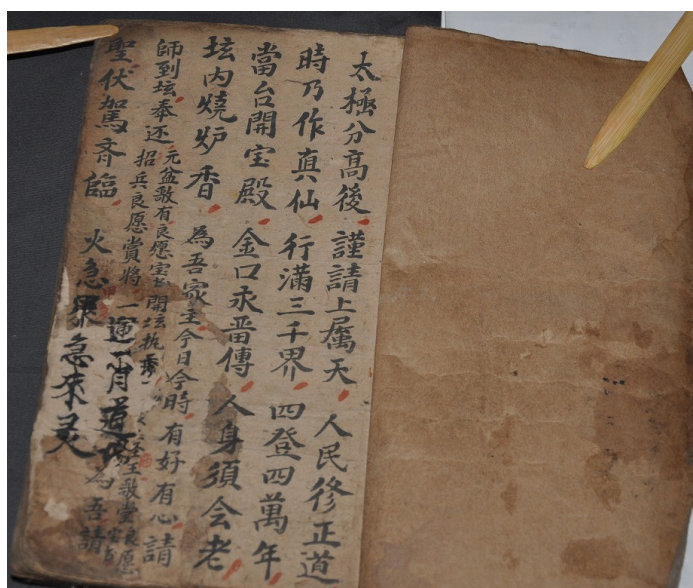 太極分高後謹請上属天人民修正道
時乃作真仙行滿三千界四登四萬年
當台開宝殿金口永畨傳人身須会老
坛内燒炉香為吾家主今日今時有好有心請
師到坛奉还元盆敬有良愿宝 開坛执
招兵良愿賞將一運 道 良愿
聖伏駕斉臨火急眾急來灵 吾請